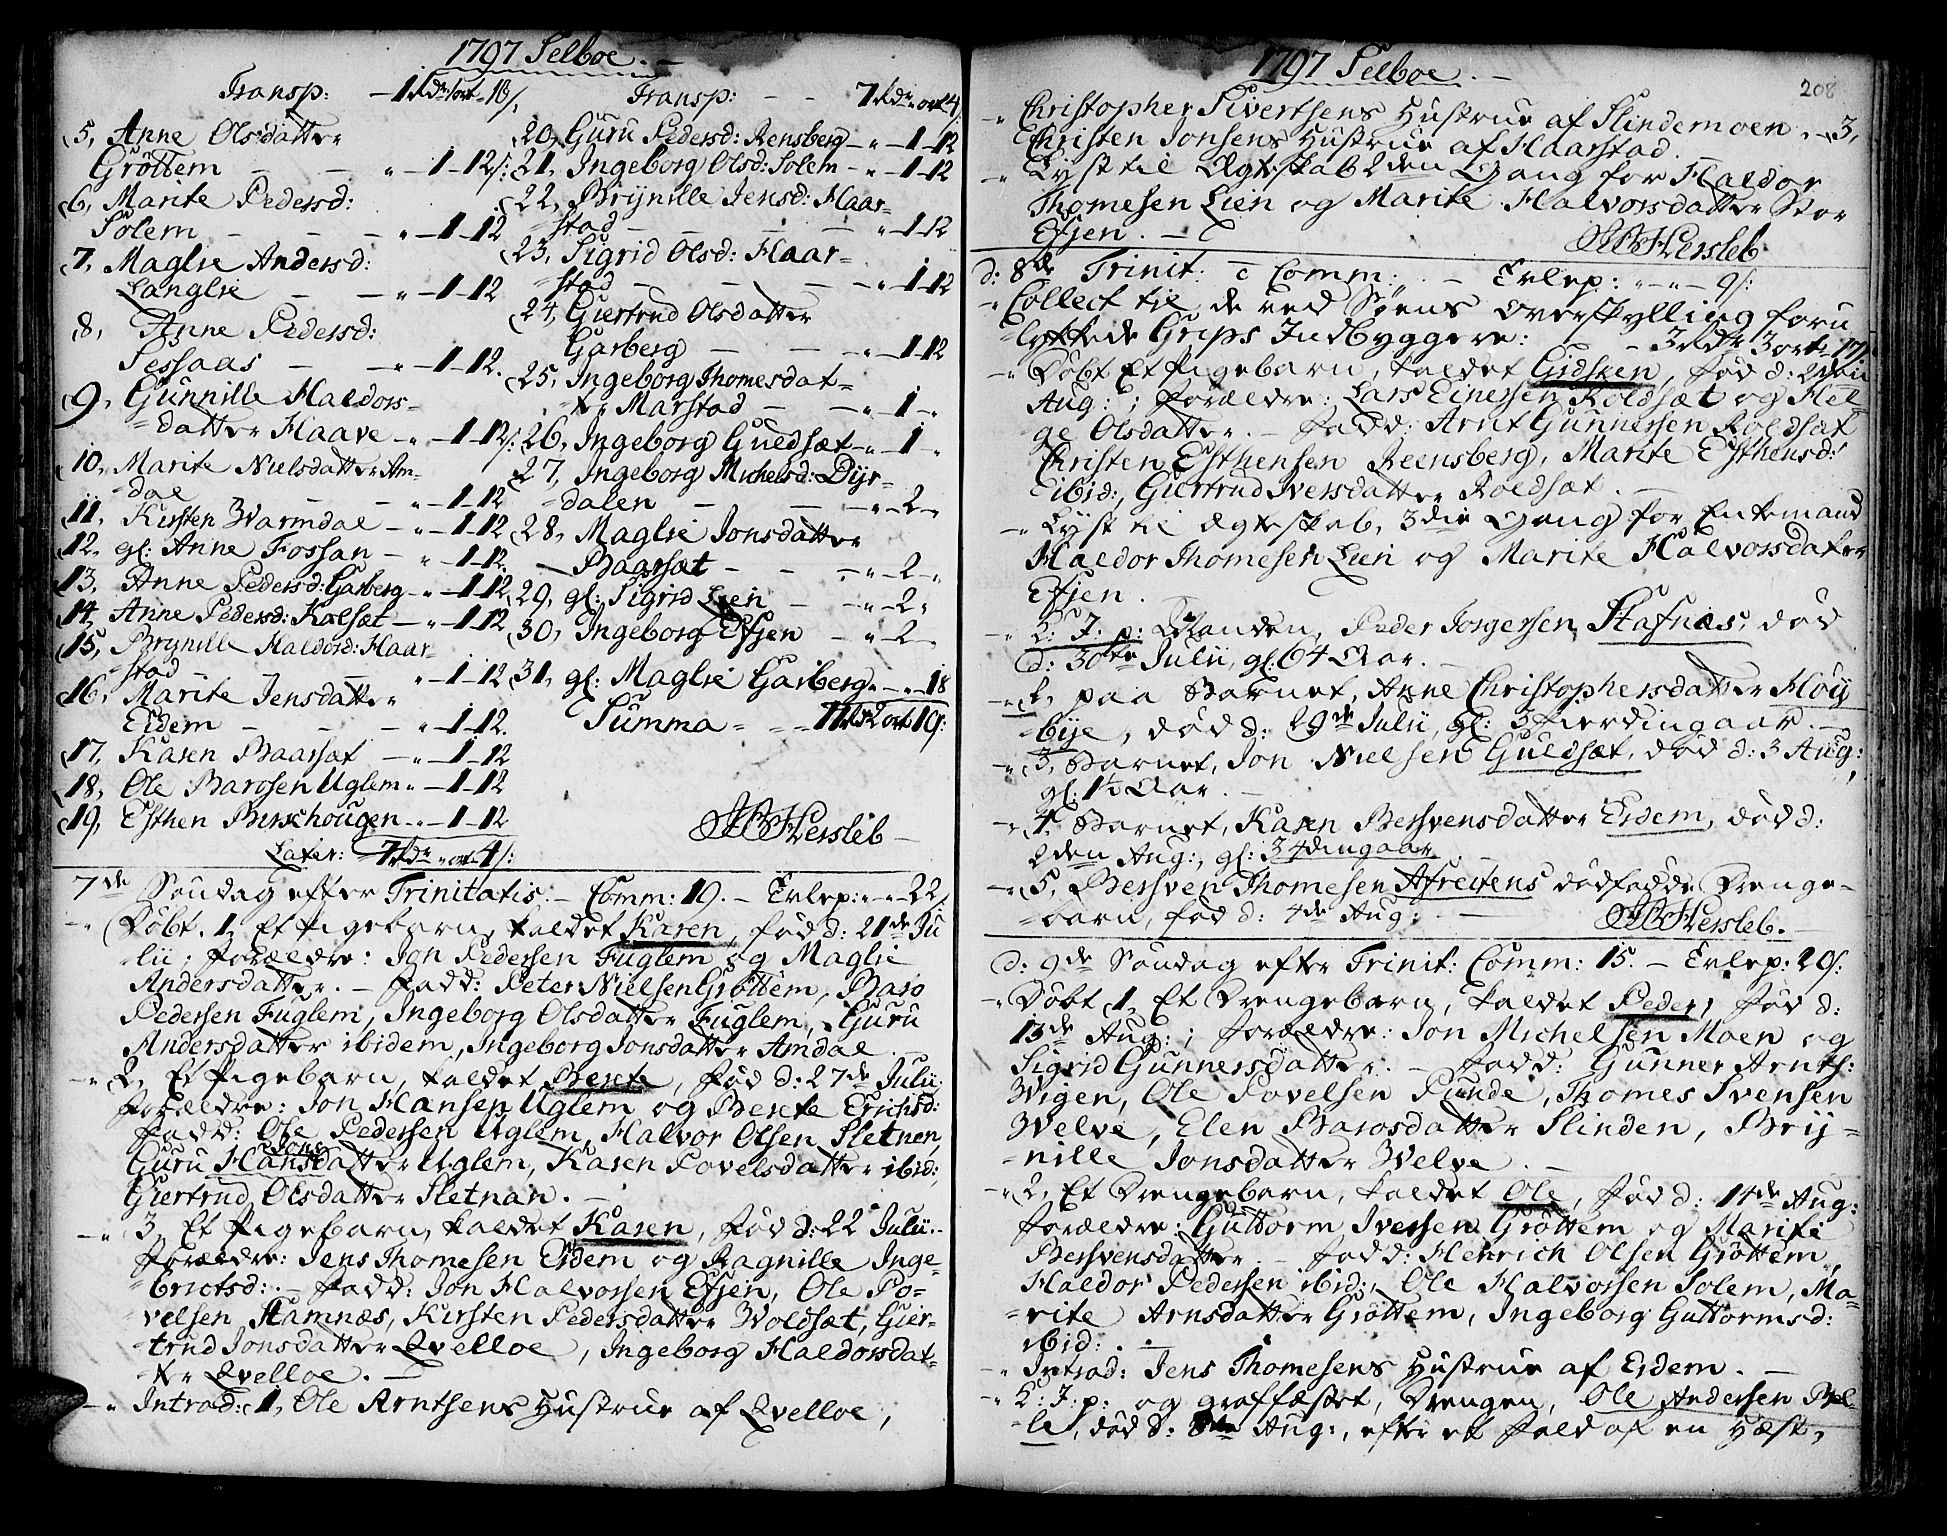 1797 Selboe. -
Transp: - 1 Rdr 1 ort - 10/.
5, Anne Olsdatter
Grøttem - - " - 1 - 12/:
6, Marite Pedersd:
Solem - - - " - 1 - 12
7, Maglie Andersd:
Langlie - - " - 1 - 12
8, Anne Pedersd:
Sessaas - - " - 1 - 12.
9, Gunnille Haldors-
datter Haave - " - 1 - 12/:
10, Marite Nielsdatter Am-
dal - - " - 1 - 12
11, Kirsten Warmdal - " - 1 - 12
12, gl: Anne Fossan - " - 1 - 12.
13, Anne Pedersd: Garberg - " - 1 - 12
14, Anne Pedersd: Kalsæt - " - 1 - 12
15, Brynille Haldorsd: Haar-
stad - - " - 1 - 12
16, Marite Jensdatter
Eidem - - - " - 1 - 12.
17, Karen Baarsæt - " - 1 - 12
18, Ole Barosen Uglem " - 1 - 12
19, Esthen Birschougen - " - 1 - 12
Later: 7 Rdr " ort 4/:
Transp: - - 7 Rdr " ort 4/
20, Guru Pedersd: Rensberg - " - 1 - 12
21, Ingeborg Olsd: Solem - " - 1 - 12
22, Brynille Jensd: Haar-
stad - - - - " - 1 - 12
23, Sigrid Olsd: Haar-
stad - - - - " - 1 - 12
24, Giertrud Olsdatter
Garberg - - - " - 1 - 12
25, Ingeborg Thomesdat-
ter Marstad - - " - 1 - "
26, Ingeborg Guldsæt - " - 1 "
27, Ingeborg Michelsd: Dyr-
dalen - - - " - 2 - "
28, Maglie Jonsdatter
Baarsæt - - - " - 2 - "
29, gl: Sigrid Lien - - " - 2 "
30, Ingeborg Efsjen - " - 2 - "
31, gl: Maglie Garberg " - " - 18
Summa - - 11 Rd 2 ort 10/:
H Hersleb -
7de Søndag efter Trinitatis. - Comm: 19. - Exlep: " - " - 22/
- " Døbt. 1, Et Pigebarn, kaldet Karen, fød d: 21de Ju
lii; Forældre: Jon Pedersen Fuglem og Maglie
Andersdatter. - Fadd: Peter Nielsen Grøttem, Baro
Pedersen Fuglem, Ingeborg Olsdatter Fuglem, Guru
Andersdatter ibidem, Ingeborg Jonsdatter Amdal.
- " 2, Et Pigebarn, kaldet Berete, fød d: 27de Julii:
Forældre: Jon Hansen Uglem og Berete Erichsd:
Fadd: Ole Pedersen Uglem, Halvor Olsen Sletnen,
Jons
Guru Hansdatter Uglem, Karen Povelsdatter ibid:,
Giertrud Olsdatter Sletnan. -
- " 3, Et Pigebarn, kaldet Karen, fød d: 22 Julii. -
Forældre: Jens Thomesen Eidem og Ragnille Inge-
brictsd: - Fadd: Jon Halvorsen Efsjen, Ole Po-
velsen Stamnæs, Kirsten Pedersdatter Woldsæt, Gier-
trud Jonsdatter Qvelloe, Ingeborg Haldorsdat-
ter Qvelloe. -
- " Introd: 1, Ole Arntsens Hustrue af Qvelloe,
1797 Selboe. -
208
- " Christopher Sivertsens Hustrue af Slindemoen. - 3,
Christen Jonsens Hustrue af Haarstad.
- " Lyst til Ægteskab 2den Gang for Haldor
Thomesen Lien og Marite Halvorsdatter Stor
Efsjen. -
H Hersleb
d: 8de Trinit: c Comm: - Exlep: " - " - 9/:
- " Collect til de ved Søens Overskylling foru
lykkede Grips Indbyggere: - 3 Rdr 3 ort 17/:
- " Døbt Et Pigebarn, kaldet Gidsken, fød d: 2den
Aug:; Forældre: Lars Einersen Roldsæt og Hel-
ge Olsdatter. - Fadd: Arnt Gunnersen Roldsæt
Christen Esthensen Reensberg, Marite Esthensd:
ibid:, Giertrud Iversdatter Roldsæt. -
- " Lyst til Ægteskab, 3die Gang for Enkemand
Haldor Thomesen Lien og Marite Halvorsdatter
Efsjen.
- " D: J: p: Manden, Peder Jorgersen Stafnæs, død
d: 30te Julii, gl: 64 Aar. -
- " 2, paa Barnet, Anne Christophersdatter Høy
bye, død d: 29de Julii, gl: 3 fierdingaar. -
- " 3, Barnet, Jon Nielsen Guldsæt, død d: 3 Aug:,
gl: 1½ Aar. -
- " 4, Barnet, Karen Bersvensdatter Eidem, død d:
2den Aug:, gl: 3 4dingaar
- " 5, Bersven Thomesen Afreitens dødfødde Drenge-
barn, fød d: 4de Aug: -
H Hersleb. -
d: 9de Søndag efter Trinit: Comm: 15. - Exlep: 20/:
- " Døbt 1, Et Drengebarn, kaldet Peder, fød d:
13de Aug:; Forældre: Jon Michelsen Moen og
Sigrid Gunnersdatter. - Fadd: Gunner Arnts:
Wigen, Ole Povelsen Sunde, Thomes Svensen
Welve, Elen Barosdatter Slinden, Bry-
nille Jonsdatter Welve. -
- " 2, Et Drengebarn, kaldet Ole, fød d: 14de Aug:
Forældre: Guttorm Iversen Grøttem og Marite
Bersvensdatter - Fadd: Henrich Olsen Grøttem,
Haldor Pedersen ibid:, Ole Halvorsen Solem, Ma-
rite Arnsdatter Grøttem, Ingeborg Guttormsd:
ibid: . -
- " Introd: Jens Thomesens Hustrue af Eidem. -
- " D: J: p: og graffæstet, Drengen, Ole Andersen Bel-
li, død d: 8de Aug:, efter et Fald af en Hæst,